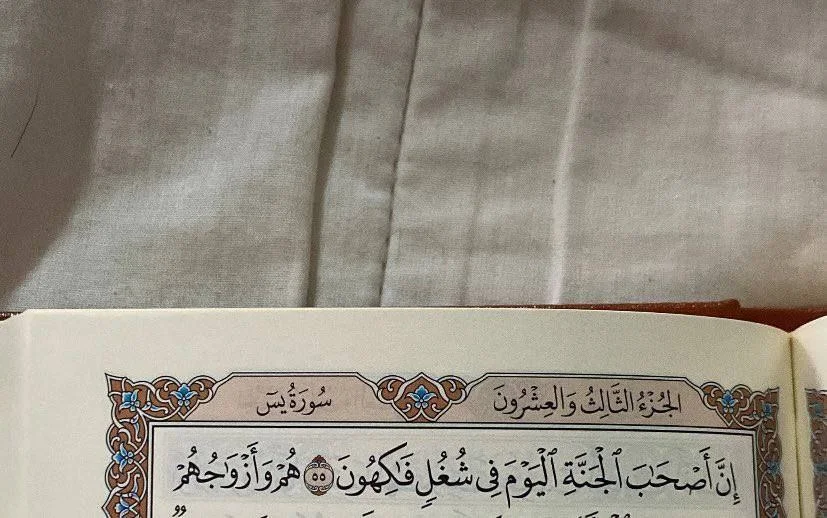 الجُزْءُ الثَّالِثُ وَالعِشْرُونَ
سُورَةُ يسٓ
إِنَّ أَصْحَٰبَ ٱلْجَنَّةِ ٱلْيَوْمَ فِى شُغُلٍ فَٰكِهُونَ ٥٥ هُمْ وَأَزْوَٰجُهُمْ